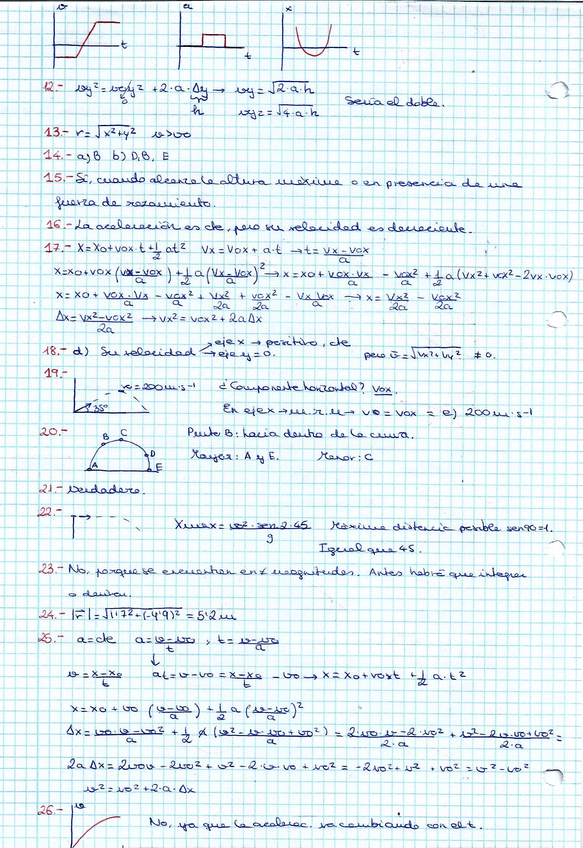 v a x
t t t
12.- vy² = voy² + 2·a·Δy → vy = √2·a·h
0 h vy2 = √4·a·h Sería el doble.
13.- r = √x²+y² v>vo
14.- a) B b) D, B, E
15.- Sí, cuando alcance la altura máxima o en presencia de una
fuerza de rozamiento.
16.- La aceleración es cte, pero su velocidad es decreciente.
17.- x = xo + vox·t + 1/2 at² vx = vox + a·t → t = (vx-vox)/a
x = xo + vox (vx-vox)/a + 1/2 a (vx-vox/a)² → x = xo + vox·vx/a - vox²/a + 1/2 a (vx² + vox² - 2vx·vox)
x = xo + vox·vx/a - vox²/a + vx²/2a + vox²/2a - vx vox/a → x = vx²/2a - vox²/2a
Δx = (vx²-vox²)/2a → vx² = vox² + 2aΔx
18.- d) Su velocidad → eje x → positivo, cte
→ eje y = 0. pero v = √vx²+vy² ≠ 0.
19.- v = 200 m·s-1 ¿Componente horizontal? vox.
35° En eje x → m.r.u → vo = vox = e) 200 m·s-1
20.- A B C D E Punto B: hacia dentro de la curva.
Mayor: A y E. Menor: C
21.- Verdadero.
22.- Xmax = vo²·sen 2·45/g Máxima distancia posible sen90=1.
Igual que 45.
23.- No, porque se encuentran en ≠ magnitudes. Antes habrá que integrar
o derivar.
24.- |r| = √1'7²+(-4'9)² = 5'2 m
25.- a = cte a = (v-vo)/t , t = (v-vo)/a
v = (x-xo)/t at = v-vo = (x-xo)/t - vo → x = xo + vot + 1/2 a·t²
x = xo + vo (v-vo/a) + 1/2 a (v-vo/a)²
Δx = (vo·v-vo²)/a + 1/2 a (v²-v·vo+vo²)/a = (2·vo·v-2·vo²)/2·a + (v²-2v·vo+vo²)/2·a =
2aΔx = 2vov - 2vo² + v² - 2·v·vo + vo² = -2vo² + v² + vo² = v² - vo²
v² = vo² + 2·a·Δx
26.- v No, ya que la acelerac. va cambiando con el t.